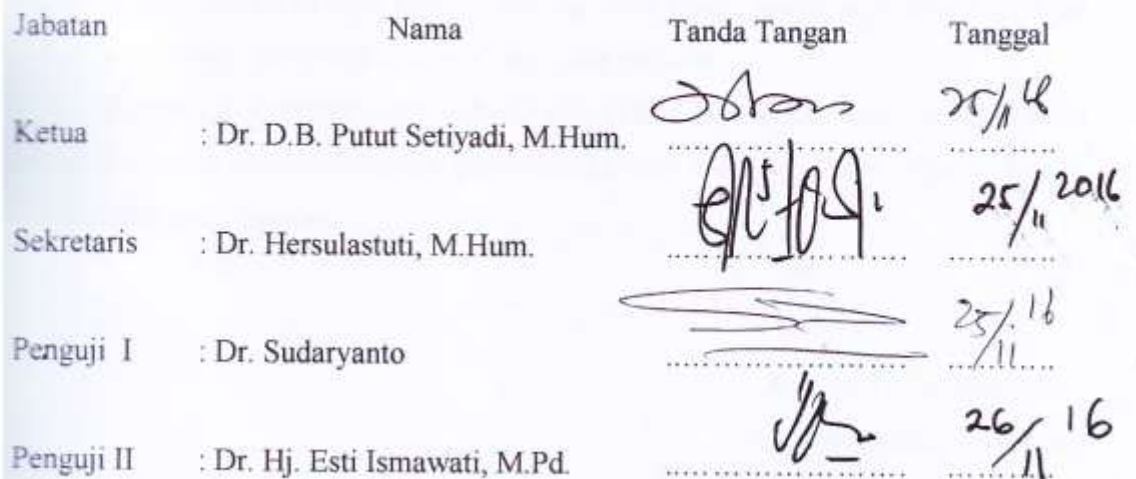 Jabatan Nama Tanda Tangan Tanggal
25/11
Ketua : Dr. D.B. Putut Setiyadi, M.Hum. .................... ............
25/11 2016
Sekretaris : Dr. Hersulastuti, M.Hum. .................... ............
25/11 16
Penguji I : Dr. Sudaryanto .................... ............
26/11 16
Penguji II : Dr. Hj. Esti Ismawati, M.Pd. .................... ............